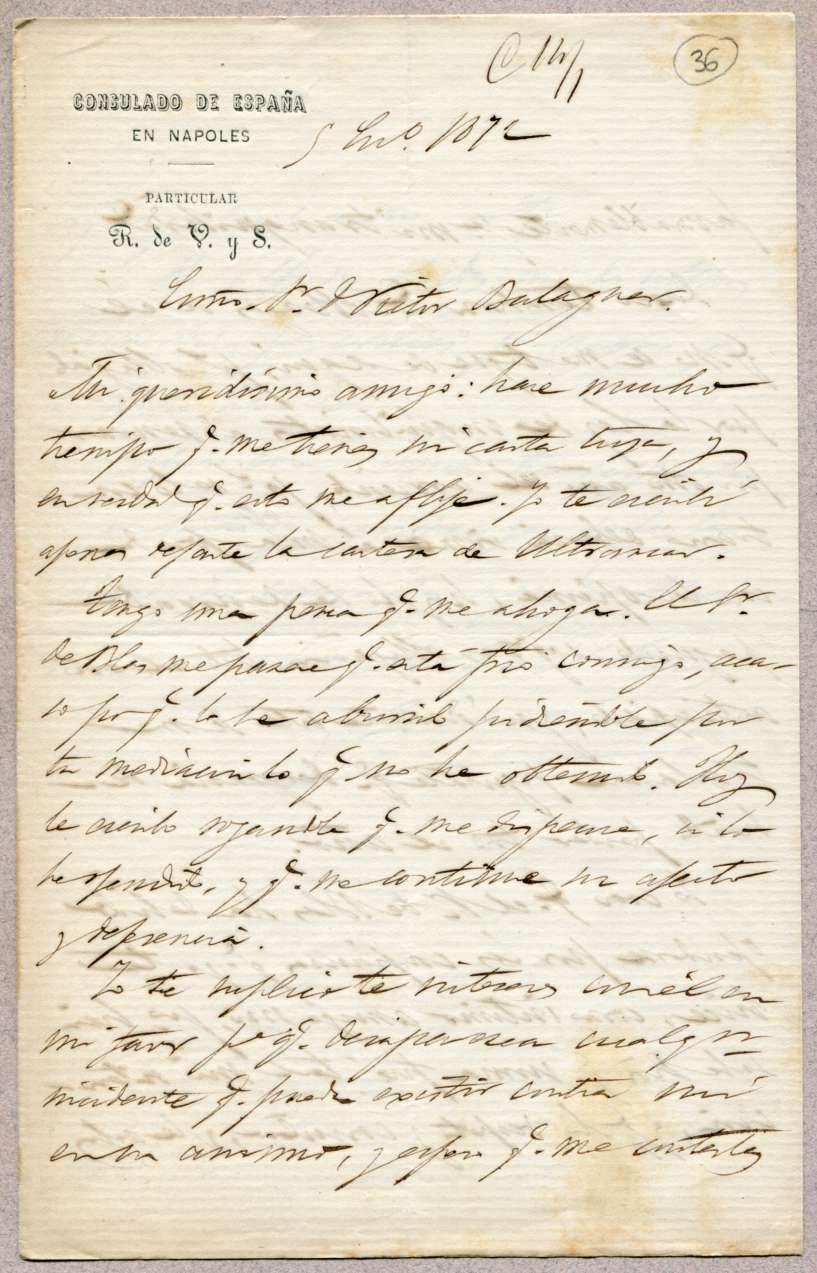 C 14/1
36
CONSULADO DE ESPAÑA
EN NAPOLES
5 En.º 1872
PARTICULAR
R. de V. y S.
Exmo. Sr. D Victor Balaguer.
Mi queridísimo amigo: hace mucho
tiempo q. me tienes sin carta tuya, y
en verdad q. esto me aflije. Yo te escribí
apenas dejaste la cartera de Ultramar.
Tengo una pena q. me ahoga. El Sr.
de Blas me parece q. está frio conmigo, aca-
so por q. le he aburrido pidiéndole por
tu mediacion lo q. no he obtenido. Hoy
le escribo rogandole q. me dispense, si lo
he ofendido, y q. me continue su afecto
y deferencia.
Yo te suplico te intereses con él en
mi favor p.ª q. desaparezca cualquier
incidente q. pueda existir contra mí
en su animo, y espero q. me contestes